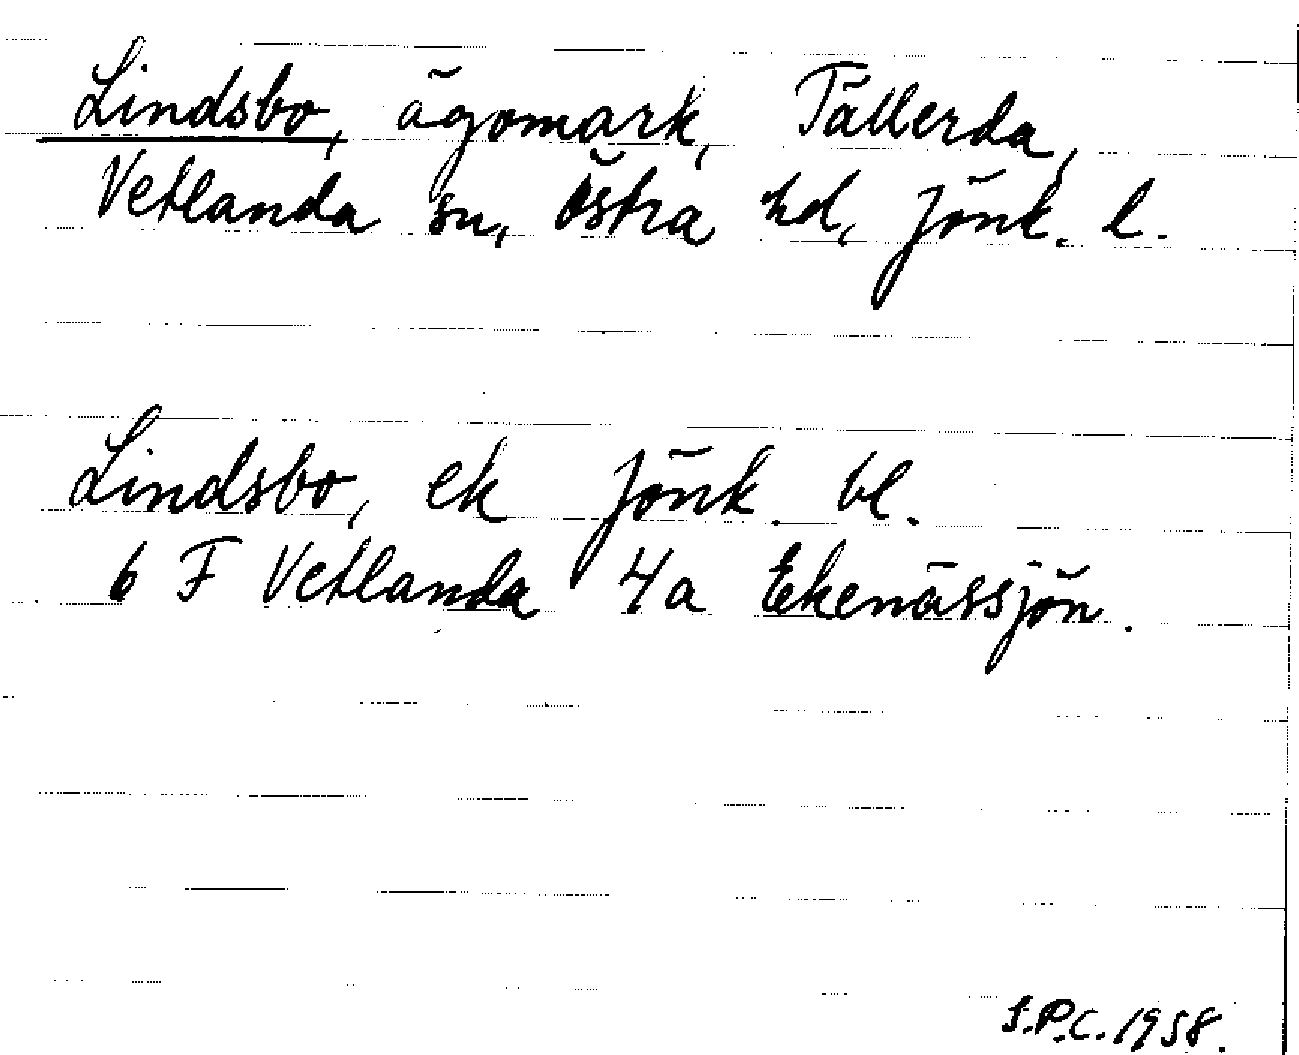 Lindsbo, ägomark, Tällerda,
Vetlanda sn, Östra hd, Jönk. l.
Lindsbo, ek Jönk. bl.
6 F Vetlanda 4a Ekenässjön.
S.P.C. 1958.